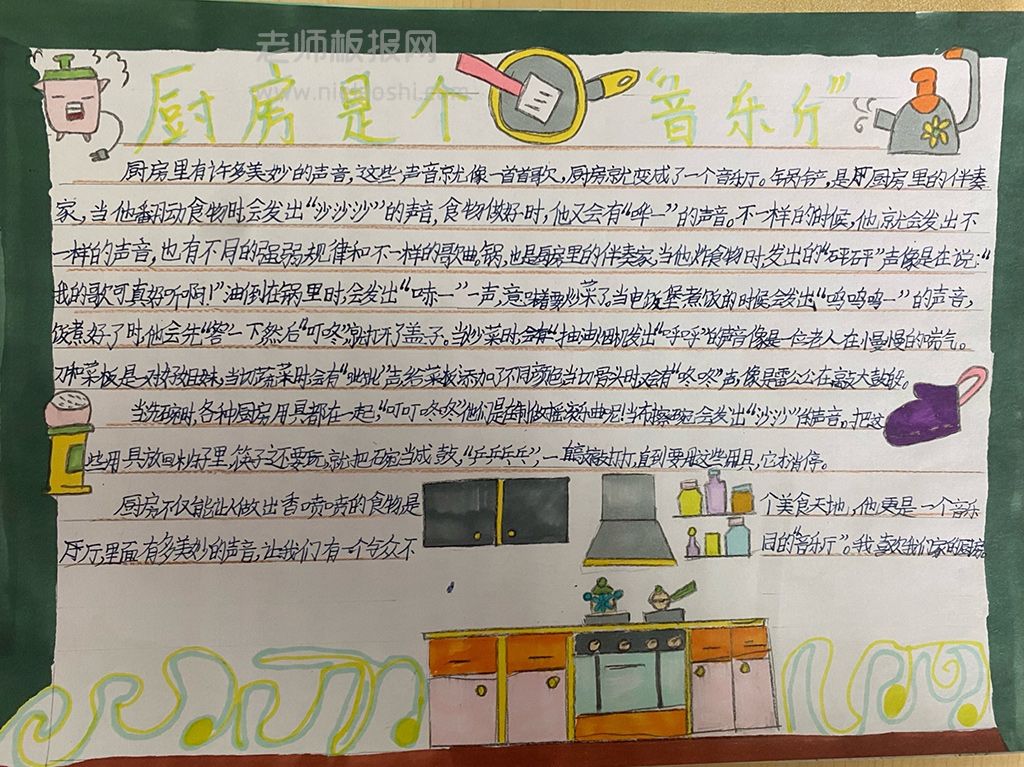 老师板报网
厨房是个"音乐厅"
厨房里有许多美妙的声音,这些声音就像一首首歌,厨房就变成了一个音乐厅。锅铲,是厨房里的伴奏
家,当他翻动食物时会发出"沙沙沙"的声音,食物做好时,他又会有"哗一"的声音。不一样的时候,他就会发出不
一样的声音,也有不同的强弱规律和不一样的歌曲。锅,也是厨房里的伴奏家,当他炸食物时发出的"砰砰"声像是在说:"
我的歌可真好听啊!"油倒在锅里时,会发出"一"一声,意味着要炒菜了。当电饭煲煮饭的时候会发出"呜呜呜一"的声音,
饭煮好了时,他会先"答"一下然后"叮咚",就打开了盖子。当炒菜时会有抽油烟机发出"呼呼"的声音像是一位老人在慢慢的喘气。
刀和菜板是一对好姐妹,当切蔬菜时会有声,给菜板添加了不同当切骨头时又会有"咚咚"声,像是雷公公在敲大鼓般。
当洗碗时,各种厨房用具都在一起,"叮叮咚咚"他们是在制做摇滚乐曲呢!当布擦碗会发出"沙沙"的声音。把这
些用具放回柜子里,筷子还要玩,就把碗当成鼓,"乒乒乓乓",一敲打,直到要用这些用具,它才消停。
厨房不仅能让人做出香喷喷的食物是个美食天地,他更是一个音乐
厅,厅里面有多美妙的声音,让我们有一个与众不同的"音乐厅"。我喜欢我们家的厨房